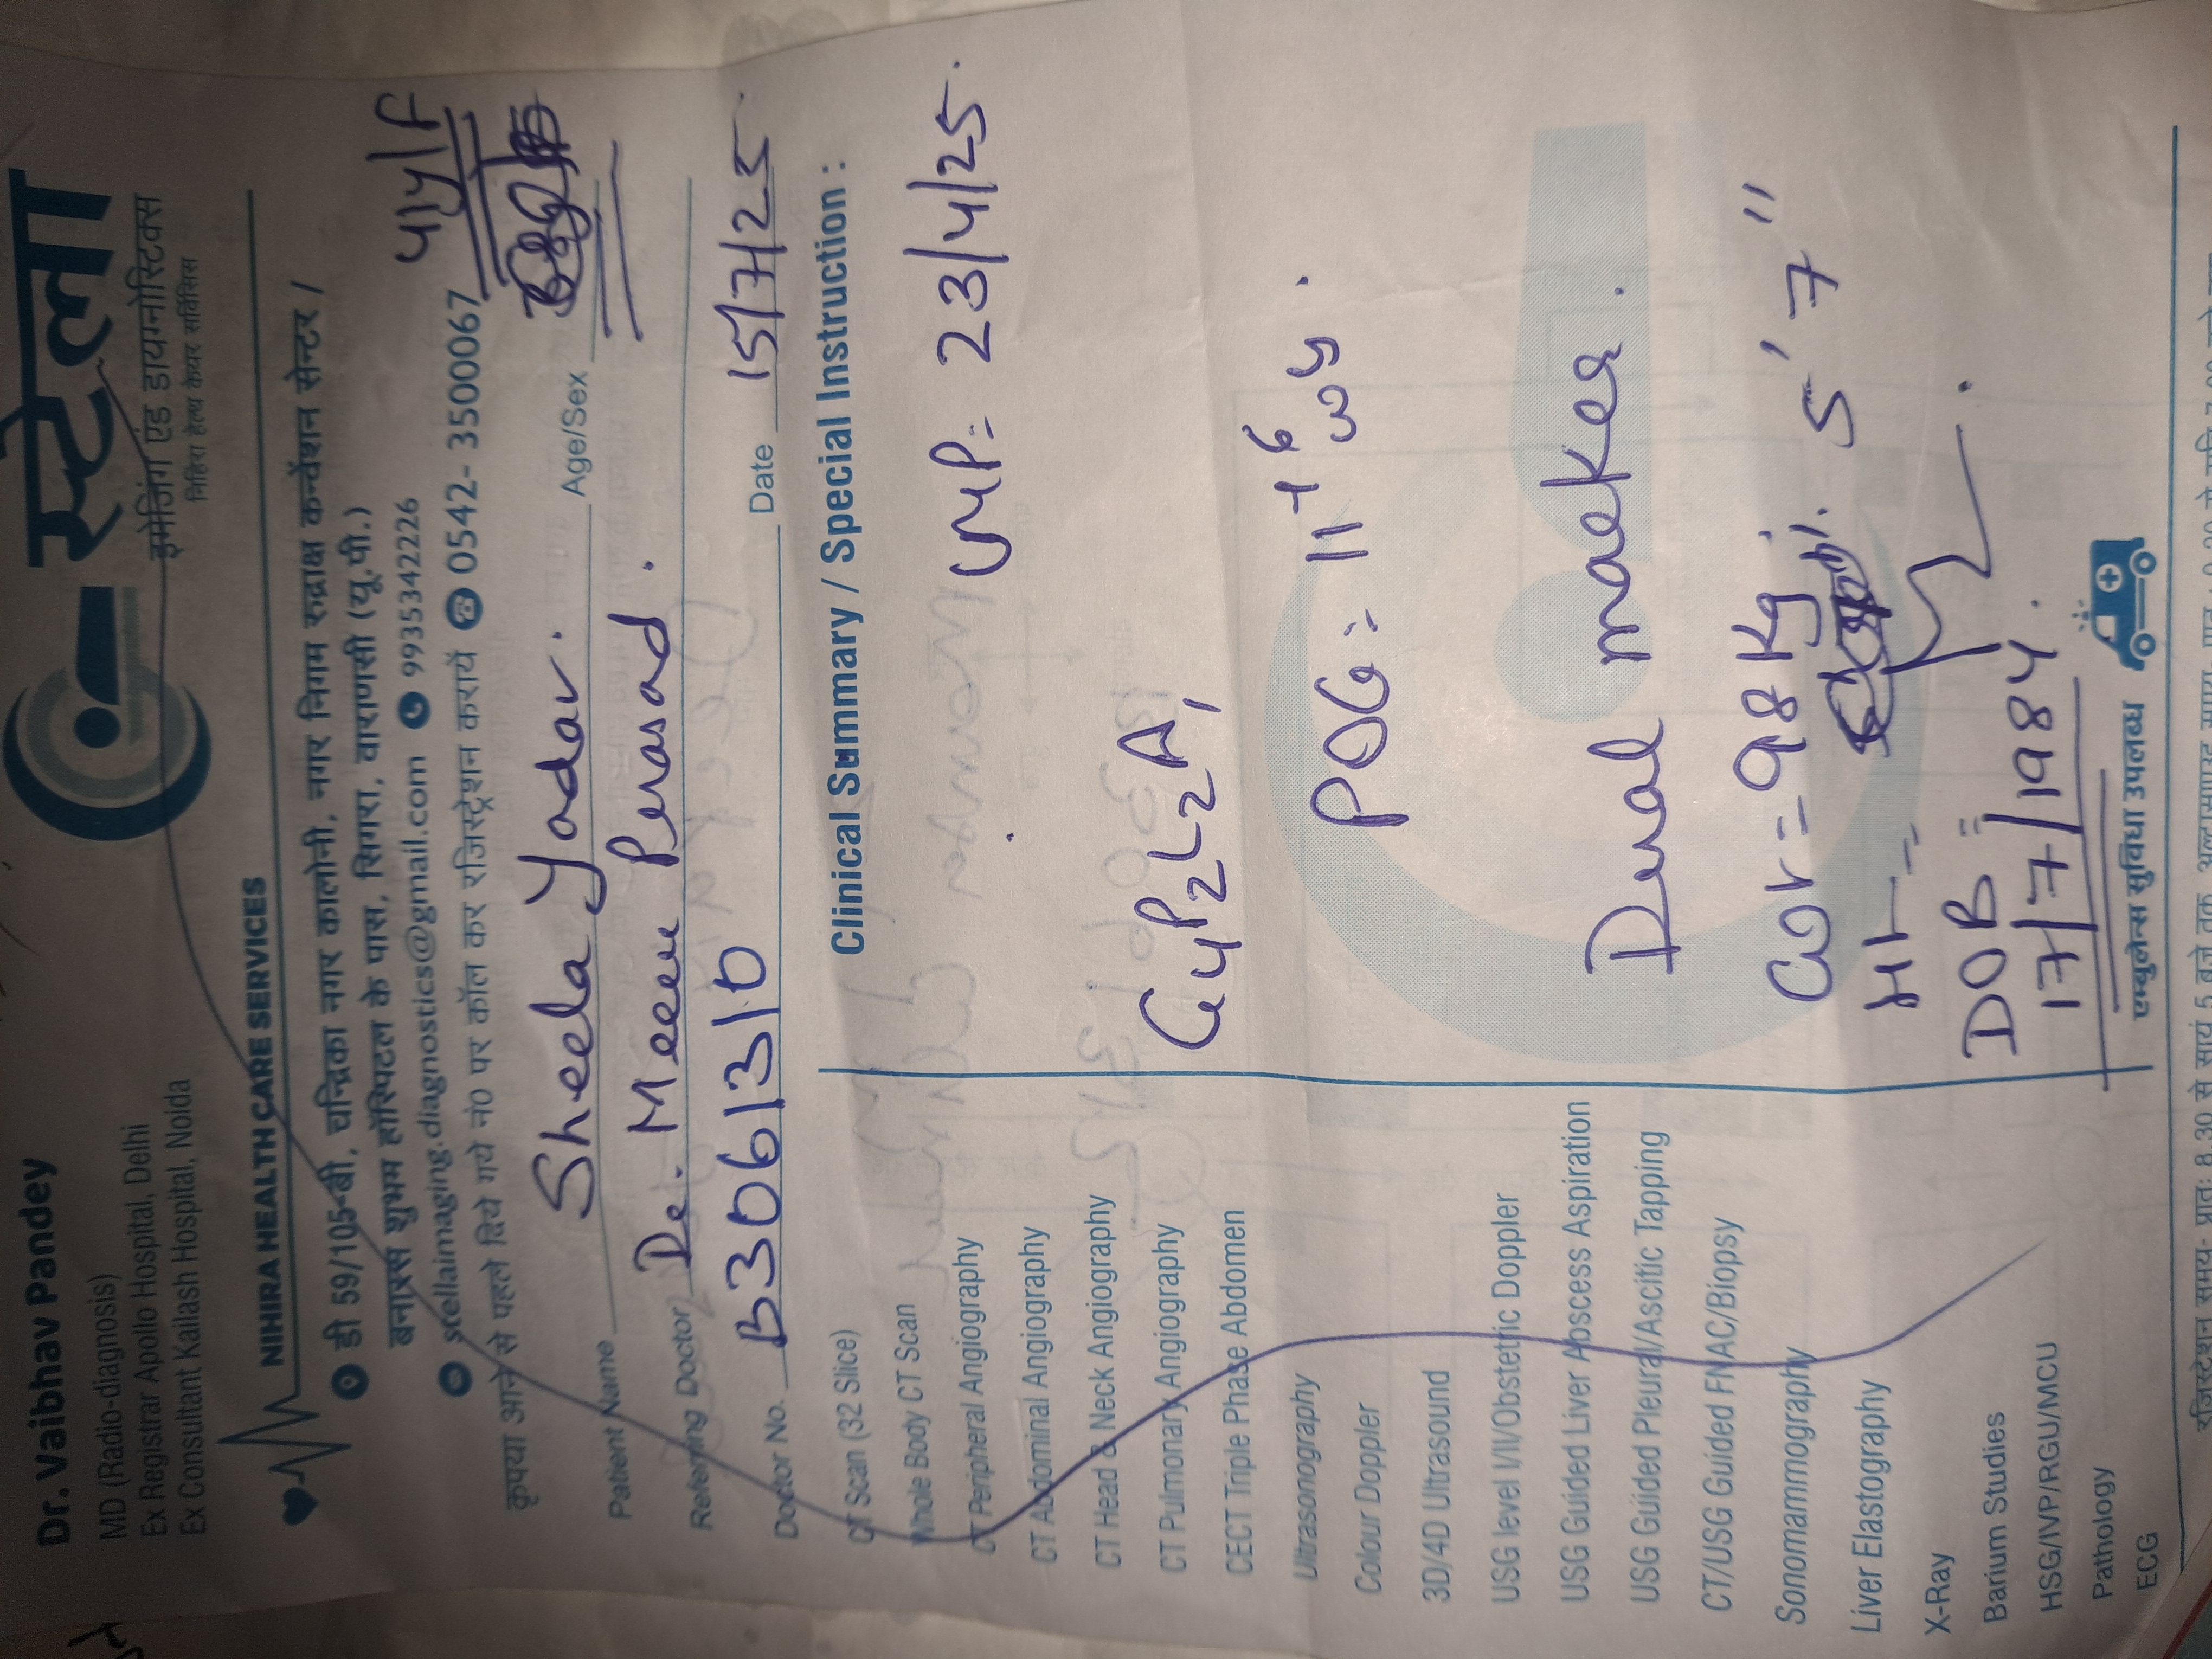 Dr. Vaibhav Pandey
MD (Radio-diagnosis)
Ex Registrar Apollo Hospital, Delhi
Ex Consultant Kailash Hospital, Noida
स्टेला
इमेजिंग एंड डायग्नोस्टिक्स
निहिरा हेल्थ केयर सर्विसिस
NIHIRA HEALTH CARE SERVICES
डी 59/105-बी, चन्द्रिका नगर कालोनी, नगर निगम रुद्राक्ष कन्वेंशन सेन्टर /
बनारस शुभम हॉस्पिटल के पास, सिगरा, वाराणसी (यू.पी.)
stellaimaging.diagnostics@gmail.com 9935342226
कृपया आने से पहले दिये गये नं0 पर कॉल कर रजिस्ट्रेशन करायें 0542- 3500067
41y/F
Patient Name Sheela Yadav. Age/Sex
Referring Doctor Dr. Meenu Prasad.
Doctor No. B306131D Date 15/7/25.
Clinical Summary / Special Instruction :
CT Scan (32 Slice)
Whole Body CT Scan
CT Peripheral Angiography
CT Abdominal Angiography
CT Head & Neck Angiography
CT Pulmonary Angiography
CECT Triple Phase Abdomen
Ultrasonography
Colour Doppler
3D/4D Ultrasound
USG level I/II/Obstetric Doppler
USG Guided Liver Abscess Aspiration
USG Guided Pleural/Ascitic Tapping
CT/USG Guided FNAC/Biopsy
Sonomammography
Liver Elastography
X-Ray
Barium Studies
HSG/IVP/RGU/MCU
Pathology
ECG
LMP= 23/4/25.
G4P2L2A1
POG= 11+6 wy.
Dual marker.
Wt= 98 Kg
Ht-- 5'7"
DOB =
17/7/1984.
एम्बुलेन्स सुविधा उपलब्ध